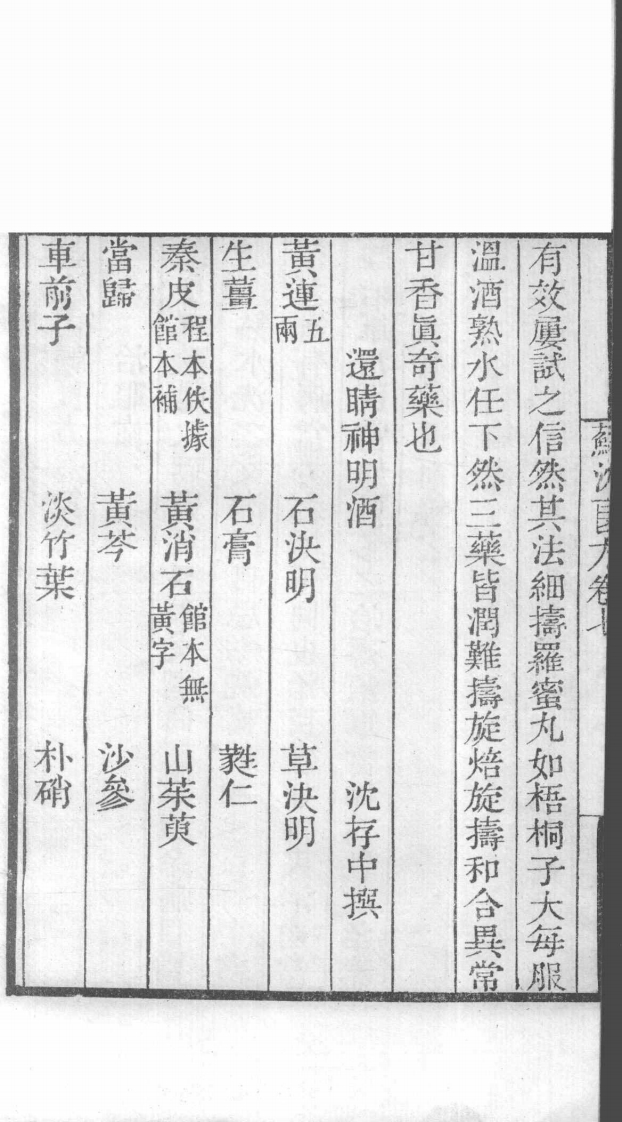 蘇沈良方卷七
有效屢試之信然其法細擣羅蜜丸如梧桐子大每服
溫酒熟水任下然三藥皆潤難擣旋焙旋擣和合異常
甘香眞奇藥也
還睛神明酒 沈存中撰
黃連五兩 石決明 草決明
生薑 石膏 蕤仁
秦皮程本佚據館本補 黃消石館本無黃字 山茱萸
當歸 黃芩 沙參
車前子 淡竹葉 朴硝